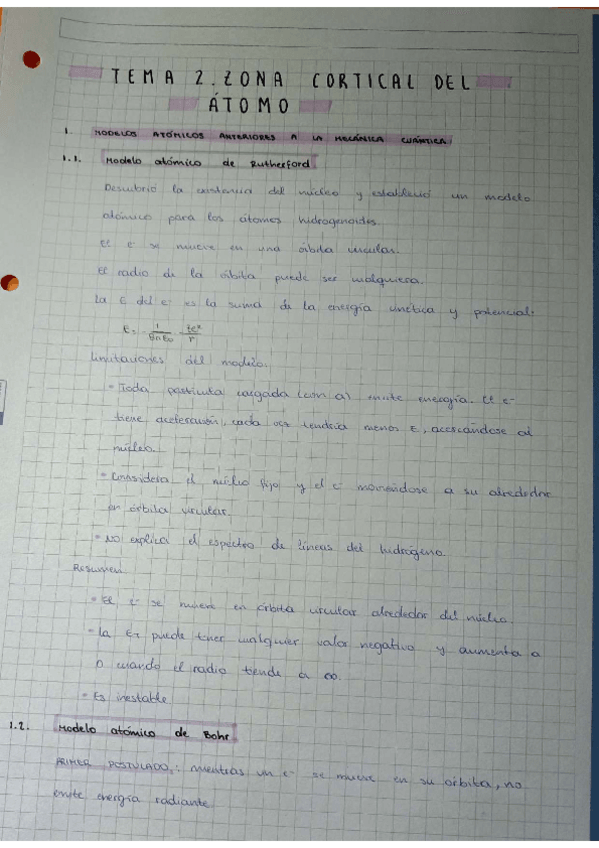 TEMA 2. ZONA CORTICAL DEL
ÁTOMO
1. MODELOS ATÓMICOS ANTERIORES A LA MECÁNICA CUÁNTICA
1.1. Modelo atómico de Rutherford
Descubrió la existencia del núcleo y estableció un modelo
atómico para los átomos hidrogenoides.
El e⁻ se mueve en una órbita circular.
El radio de la órbita puede ser cualquiera.
La E del e⁻ es la suma de la energía cinética y potencial:
E = - 1/8πε₀ · Ze²/r
Limitaciones del modelo:
- Toda partícula cargada (con a) emite energía. El e⁻
tiene aceleración, cada vez tendría menos E, acercándose al
núcleo.
- Considera el núcleo fijo y el e⁻ moviéndose a su alrededor
en órbita circular.
- No explica el espectro de líneas del hidrógeno.
Resumen
- El e⁻ se mueve en órbita circular alrededor del núcleo.
- La E puede tener cualquier valor negativo y aumenta a
0 cuando el radio tiende a ∞.
- Es inestable
1.2. Modelo atómico de Bohr
PRIMER POSTULADO: mientras un e⁻ se mueve en su órbita, no
emite energía radiante